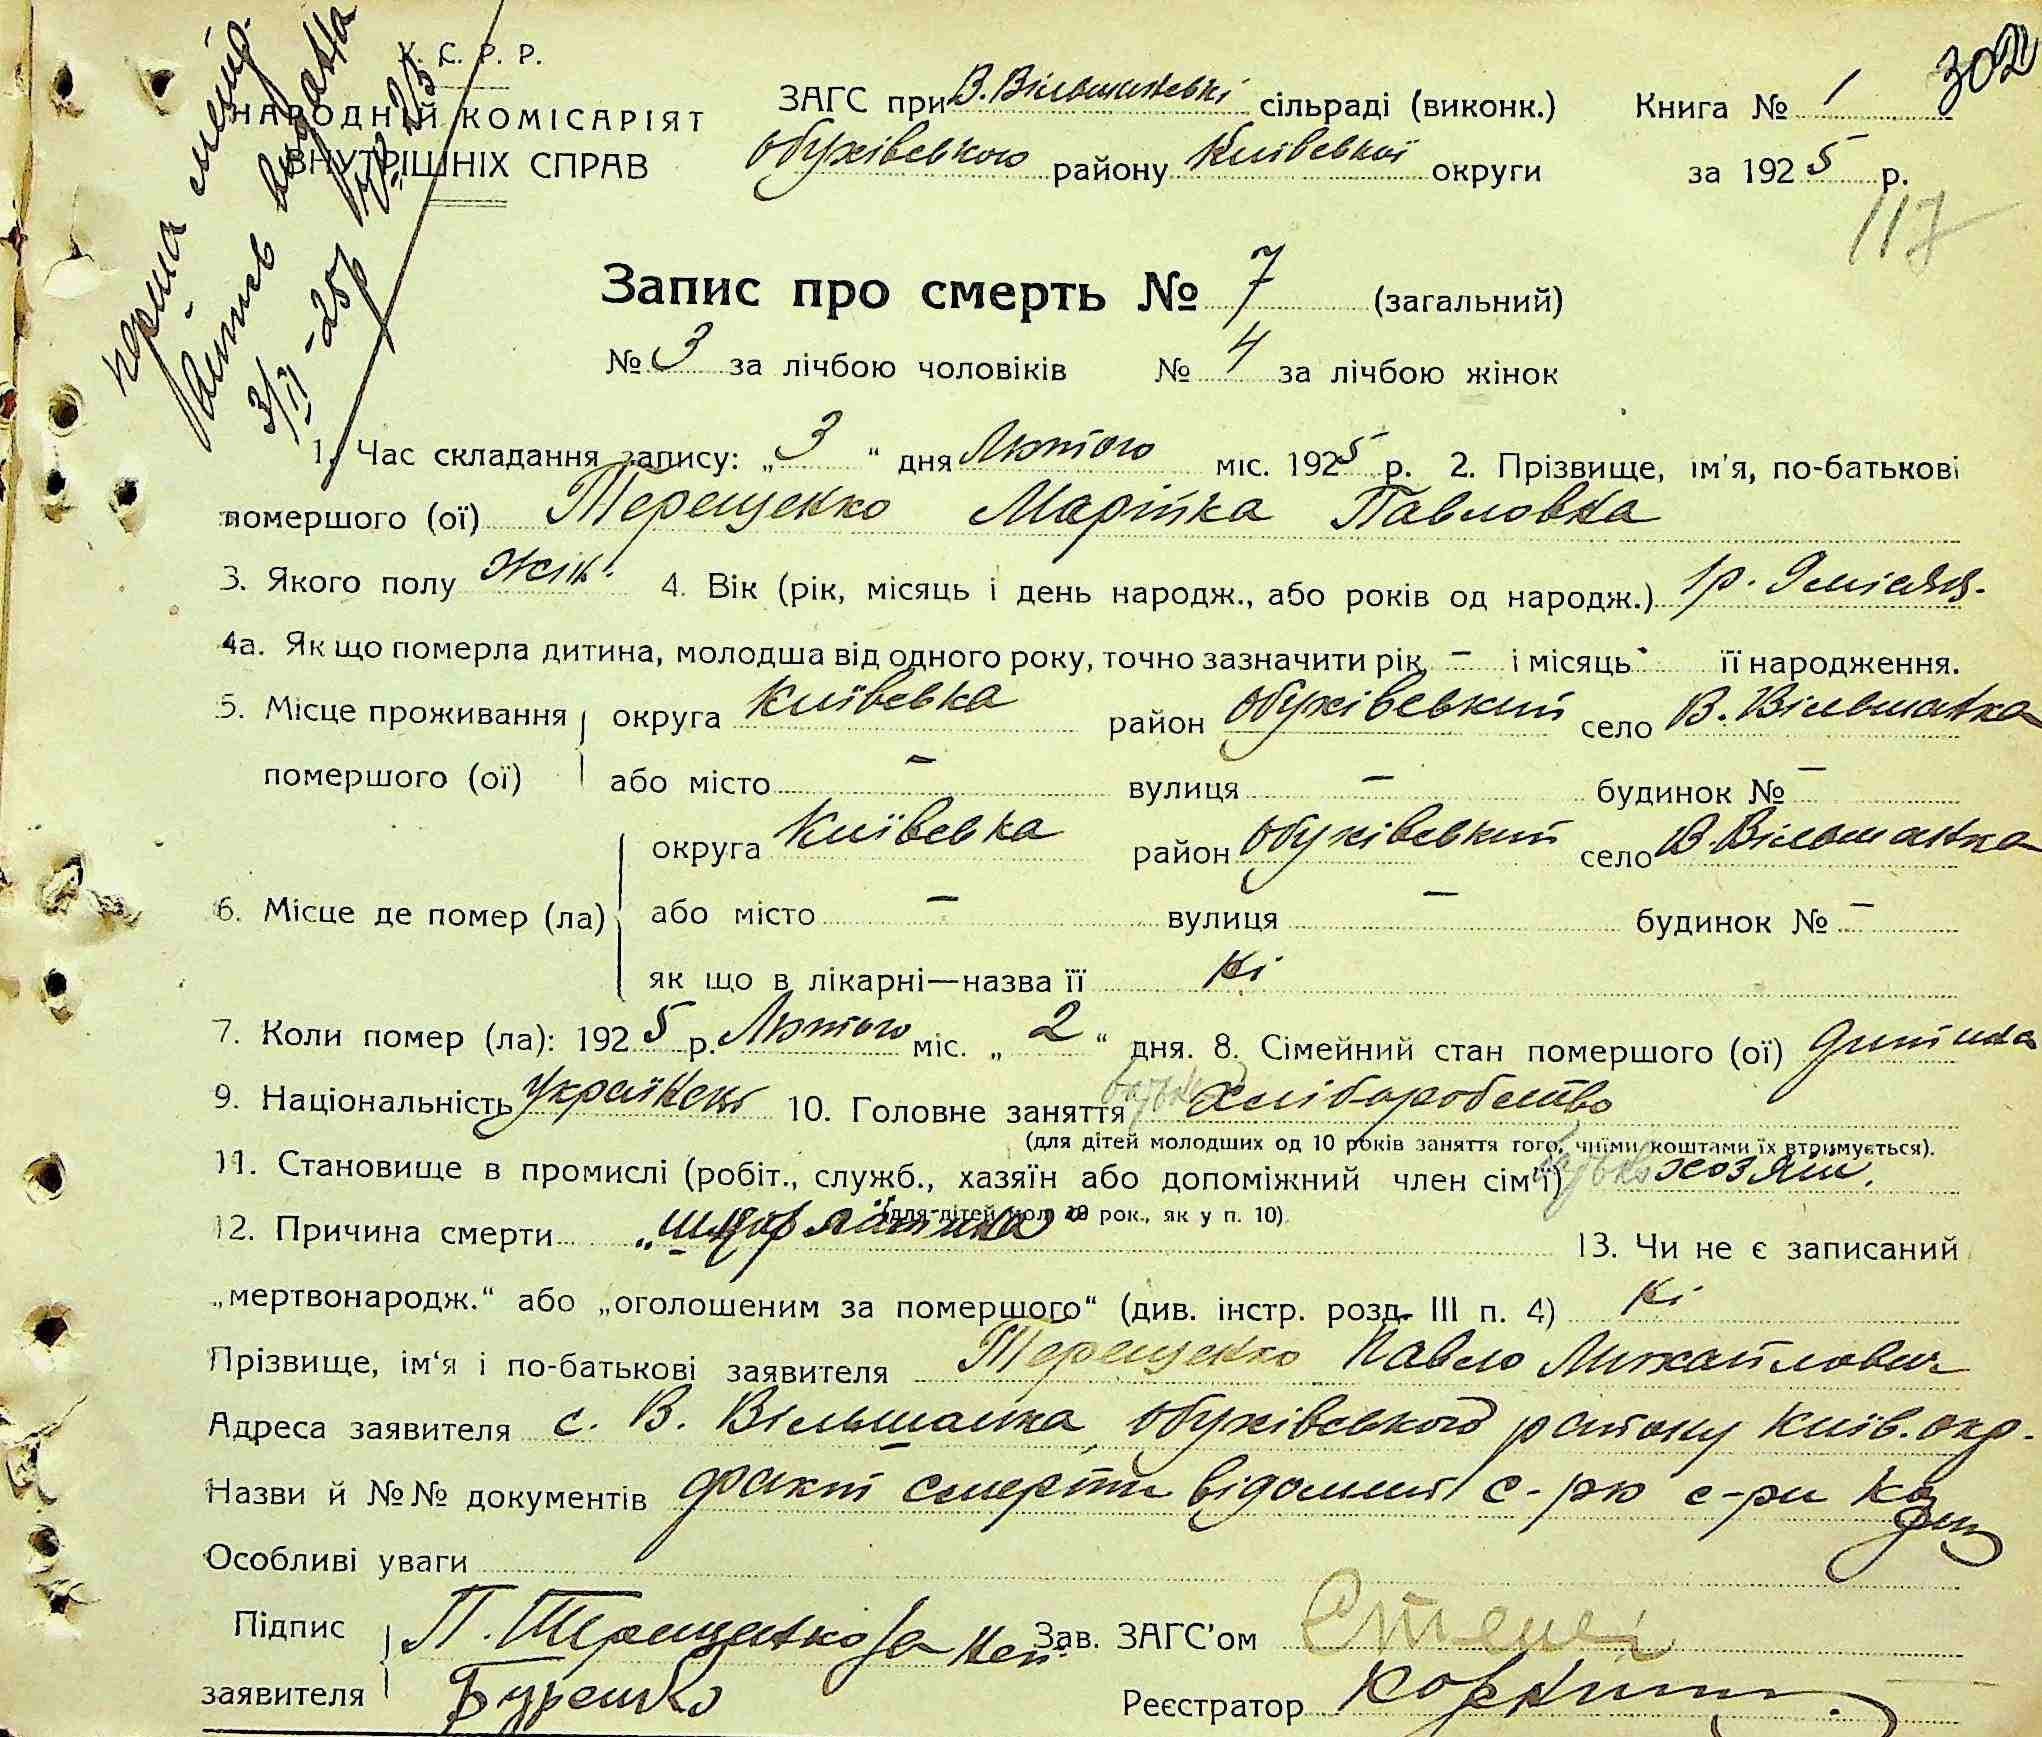 302
У. С. Р. Р.
НАРОДНІЙ КОМІСАРІЯТ
ВНУТРІШНІХ СПРАВ
ЗАГС при В. Вільшанській сільраді (виконк.) Книга № 1
Обухівського району Київської округи за 1925 р.
117
перша
видана
3/II-25р
Запис про смерть № 7 (загальний)
№ 3 за лічбою чоловіків № 4 за лічбою жінок
1. Час складання запису: „ 3 “ дня Лютого міс. 1925 р. 2. Прізвище, ім'я, по-батькові
помершого (ої) Терещенко Марійка Павловна
3. Якого полу жін. 4. Вік (рік, місяць і день народж., або років од народж.) 1р. 9 місяц.
4а. Як що померла дитина, молодша від одного року, точно зазначити рік – і місяць - її народження.
5. Місце проживання округа Київська район Обухівський село В. Вільшанка
помершого (ої) або місто – вулиця – будинок № –
округа Київська район Обухівський село В. Вільшанка
6. Місце де помер (ла) або місто – вулиця – будинок № –
як що в лікарні—назва її Ні
7. Коли помер (ла): 1925 р. Лютого міс. „ 2 “ дня. 8. Сімейний стан помершого (ої) дитина
9. Національність Українець 10. Головне заняття батька хліборобство
(для дітей молодших од 10 років заняття того, чиїми коштами їх втримується).
11. Становище в промислі (робіт., служб., хазяїн або допоміжний член сім'ї) батько хозяїн.
(для дітей мол. 10 рок., як у п. 10)
12. Причина смерти 13. Чи не є записаний
„мертвонародж.“ або „оголошеним за помершого“ (див. інстр. розд. III п. 4) Ні
Прізвище, ім'я і по-батькові заявителя Терещенко Павло Михайлович
Адреса заявителя с. В. Вільшанка, Обухівського району Київ. окр.
Назви й №№ документів факт смерти відомий с-рю с-ри
Особливі уваги
Підпис П. Терещенко за неп. Зав. ЗАГС'ом
заявителя Буренко Реєстратор